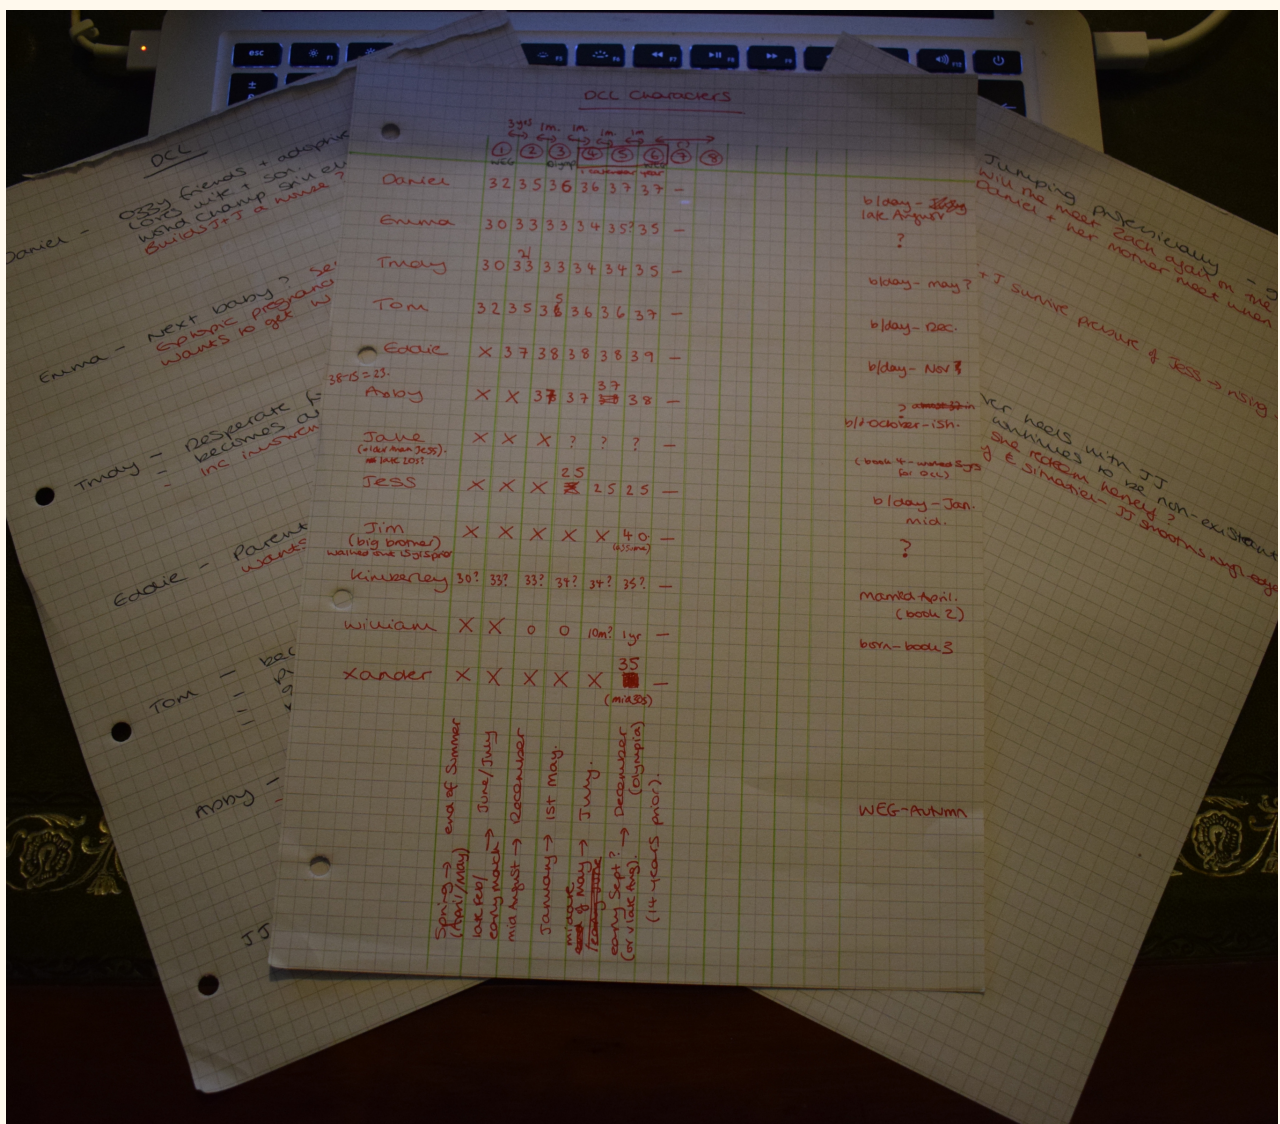 esc
DCL
Daniel -
Ozzy friends + adoptive
Loves wife + son
World champ
Builds J+J a house?
Emma - Next baby?
Ectopic pregnancy
wants to get
Trudy - Desperate
- becomes
Eddie - Parent
wants
Tom -
Abby -
JJ
DCL Characters
3yrs 1m. 1m. 1m. 1m
1 2 3 4 5 6 7 8
WEG
1 calendar year
Daniel 32 35 36 36 37 37 -
b/day -
late August
Emma 30 33 33 34 35? 35 -
?
Trudy 30 33 33 34 34 35 -
b/day - may?
Tom 32 35 36 36 36 37 -
5
b/day - Dec.
Eddie X 37 38 38 38 39 -
b/day - Nov
38-15=23.
Abby X X 37 37 37 38 -
?
b/d October-ish.
Jane X X X ? ? ? -
(older than Jess).
late 20s?
(book 4 - worked 5yrs
for DCL)
Jess X X X 25 25 25 -
b/day - Jan.
mid.
Jim X X X X X 40 -
(big brother)
walked out 15yrs prior
?
Kimberley 30? 33? 33? 34? 34? 35? -
married April.
(book 2)
William X X 0 0 10m? 1yr -
born - book 3
Xander X X X X X 35 -
(mid 30s)
Spring → end of Summer
(April/May)
late Feb/
early March → June/July
mid August → December
January → 1st May.
middle
of May → July.
early Sept? → December
(or v late Aug). (Olympia)
(14 years prior).
WEG - Autumn
Jumping professionally -
Will she meet Zach again on the
Daniel + her mother meet when
+ J survive pressure of Jess → rising
heels with JJ
continues to be non-existent
she redeem herself?
situation - JJ